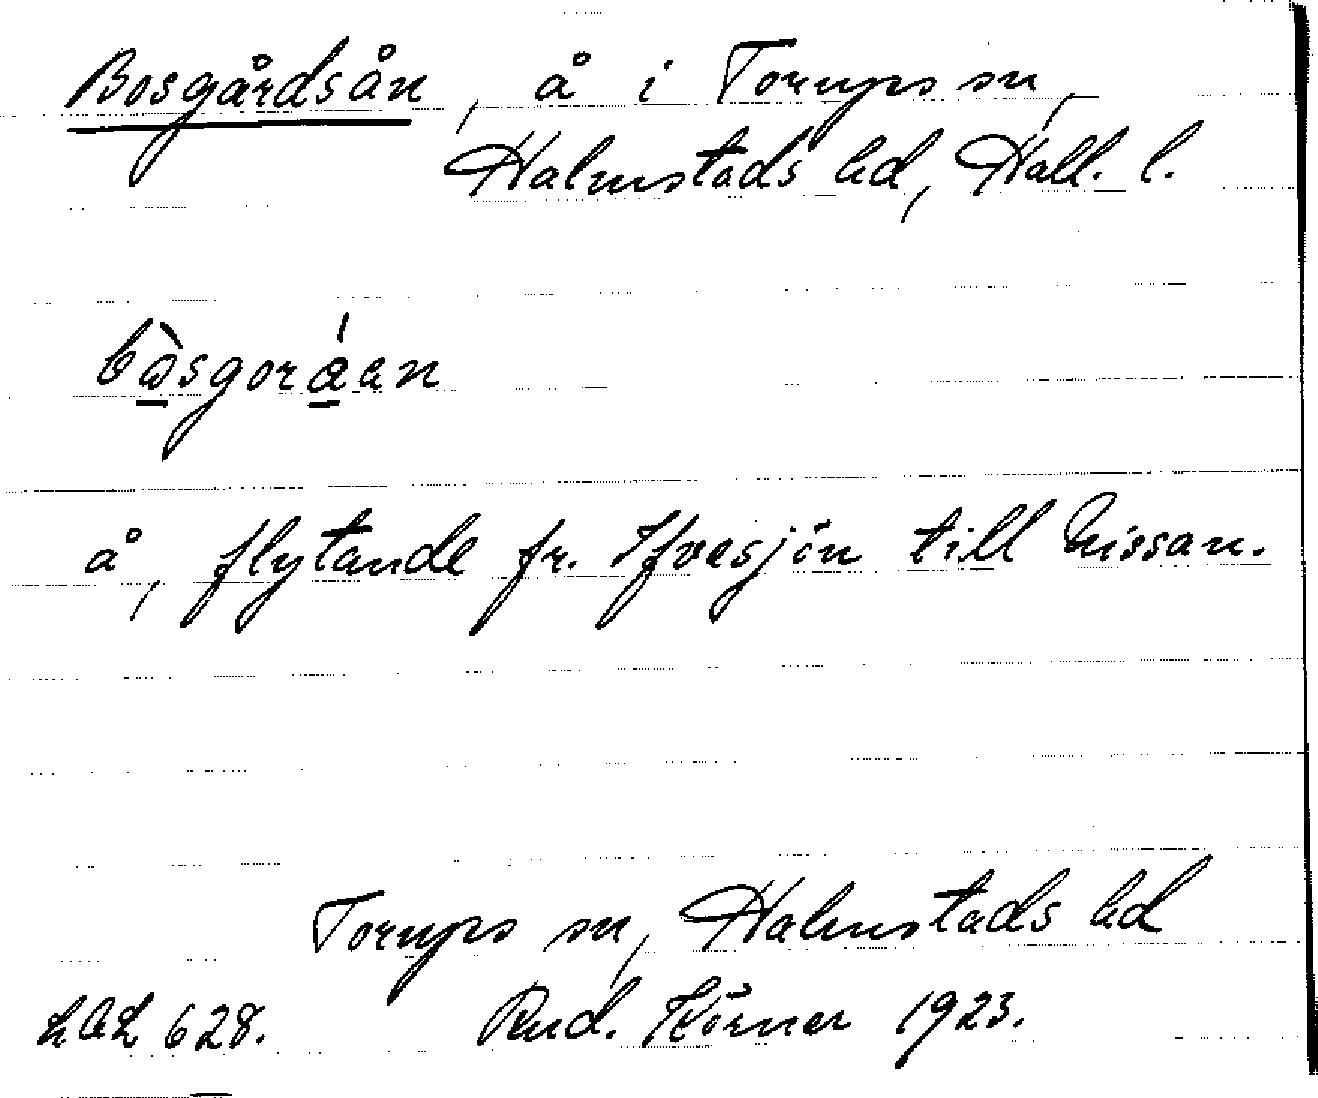 Bosgårdsån, å i Torups sn,
Halmstads hd, Hall. l.
bὼ̲sgorá̲an
å, flytande fr. Yfvesjön till Nissan.
Torups sn, Halmstads hd
LAL 628. Rud. Körner 1923.